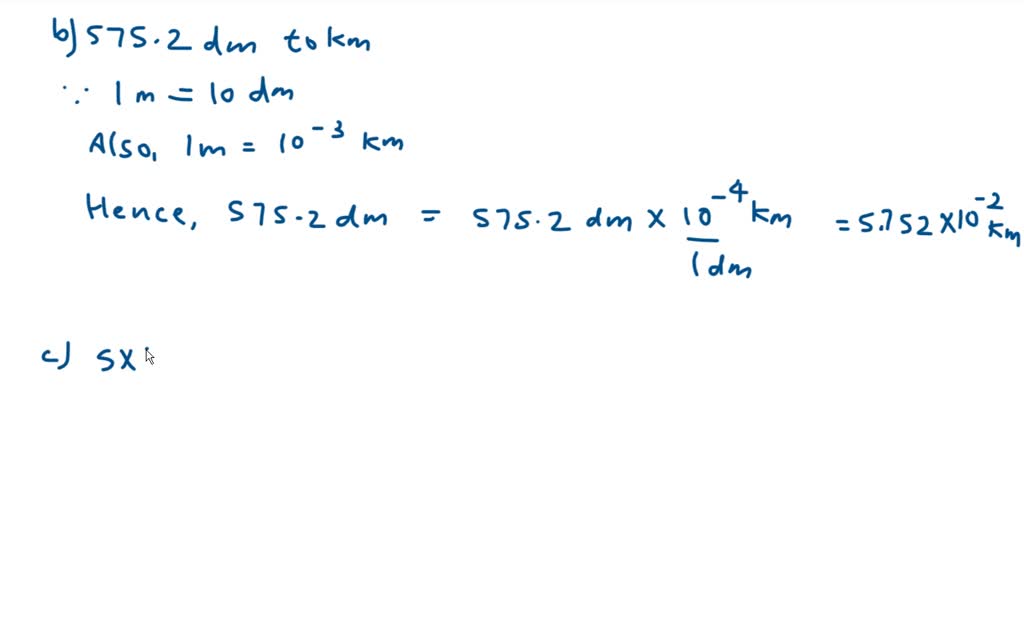 b) 575.2 dm to km
∵ 1 m = 10 dm
Also, 1m = 10⁻³ km
Hence, 575.2 dm = 575.2 dm × 10⁻⁴ km / 1 dm = 5.752 × 10⁻² km
c) 5×